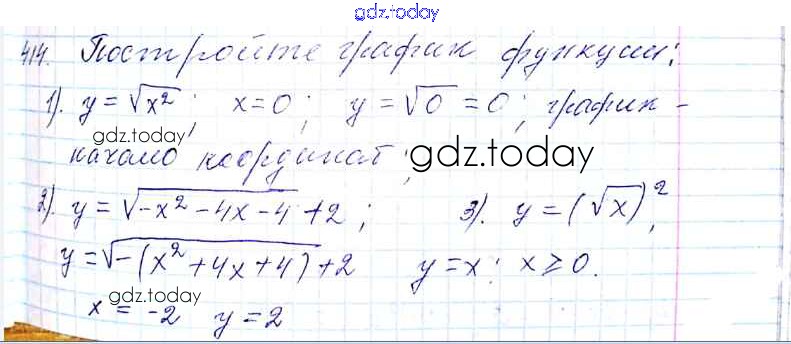 gdz.today
414. Постройте график функции:
1). y = √x²; x=0; y=√0 = 0; график -
gdz.today
начало координат;
gdz.today
2). y = √-x² - 4x - 4 + 2; 3). y = (√x)²;
y = √-(x² + 4x + 4) + 2 y = x; x ≥ 0.
gdz.today
x = -2 y = 2